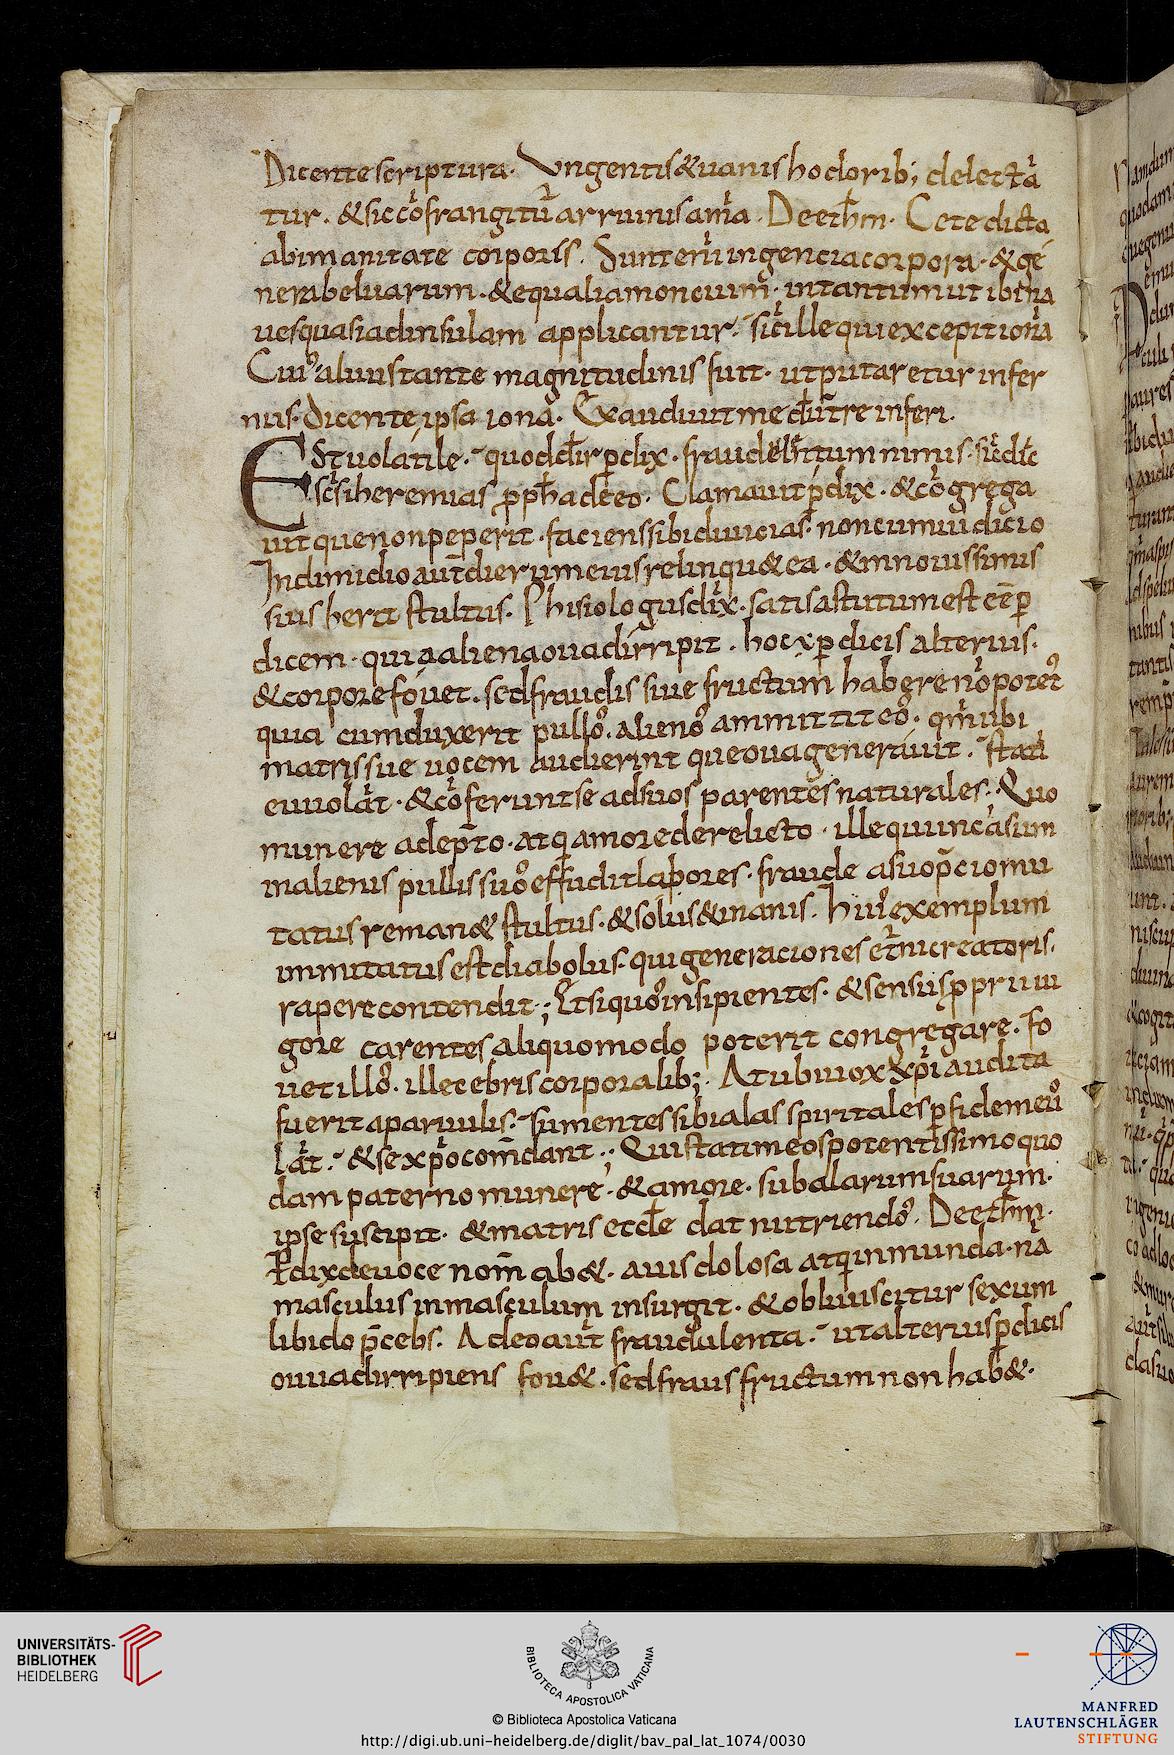 Dicente scriptura. Ungentis & uanis hodorib; delecta
tur. & sic cōfrangitur arrumis anima. De ethm. Cete dicta
abimanitate corporis. Sunt enī ingencia corpora. & ge
nera beluarum. & equalia moncium. intantum ut ibi na
ues quasi ad insulam applicantur. sic ille qui excepit iona
Cui' aluus tante magnitudinis fuit. ut putaretur infer
nus. dicente ipsa iona. Exaudiuit me de uentre inferi.
Est uolatile. quod dr perdix. fraudelentum nimis. sic dic
scs iheremias ppha de eo. Clamauit perdix. & cōgrega
uit que non peperit. faciens sibi diuicias. non cum iudicio
In dimidio aut dierum eius relinqu& ea. & in nouissimis
suis herit stultus. Phisiologus dix. satis astutum est eē per
dicem. quia aliena oua dirripit. hoc x perdicis alterius.
& corpore fouet. sed fraudis sue fructum habere nō potet
quia cum duxerit pullos. alienos ammittit eos. qm ubi
matris sue uocem audierint que oua generauit. statī
euuolāt. & cōferunt se ad suos parentes naturales. Quo
munere adepto. atq amore derelicto. ille qui in casum
in alienis pullis suos effudit labores. fraude a suo pcio mu
tatus reman& stultus. & solus & inanis. hui' exemplum
immitatus est diabolus. qui generaciones eterni creatoris.
rapere contendit.; Et si quos insipientes. & sensus pprii ui
gore carentes aliquomodo poterit congregare. fo
uet illos. illecebris corporalib;. At ubi uox xpi audita
fuerit a paruulis. sumentes sibi alas spiritales p fidem euo
lāt. & se xpo comdant.; Qui statim eos potentissimo quo
dam paterno munere. & amore. sub alarum suarum.
ipse suscipit. & matris eccle dat nutriendos. De ethm.
Pdix de uoce nom hab&. auis dolosa atq inmunda. nā
masculus in masculum insurgit. & obliuiscitur sexum
libido pceps. Adeo aut fraudulenta. ut alterius perdicis
oua dirripiens fou&. sed fraus fructum non hab&.
UNIVERSITÄTS-
BIBLIOTHEK
HEIDELBERG
BIBLIOTECA APOSTOLICA VATICANA
© Biblioteca Apostolica Vaticana
http://digi.ub.uni-heidelberg.de/diglit/bav_pal_lat_1074/0030
MANFRED
LAUTENSCHLÄGER
STIFTUNG